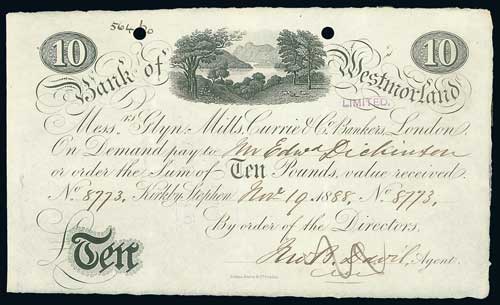 564/20
10 10
Bank of Westmorland
LIMITED.
Mess.rs Glyn, Mills, Currie & Co. Bankers, London.
On Demand pay to Mr Edwd Dickinson
or order the Sum of Ten Pounds, value received
No. 8773. Kirkby Stephen Nov. 19 1888. No. 8773.
By order of the Directors.
Ten
Agent.